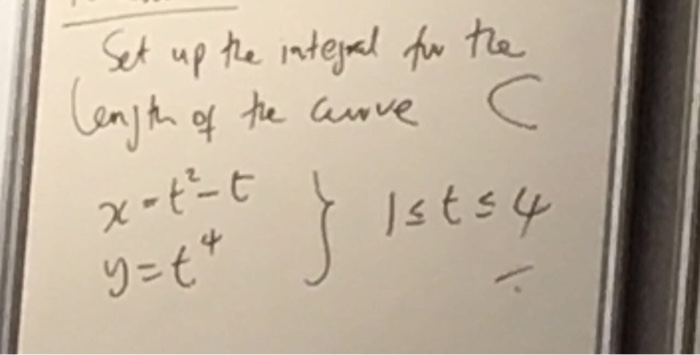 Set up the integral for the
length of the curve C
x = t² - t
y = t⁴ } 1 ≤ t ≤ 4